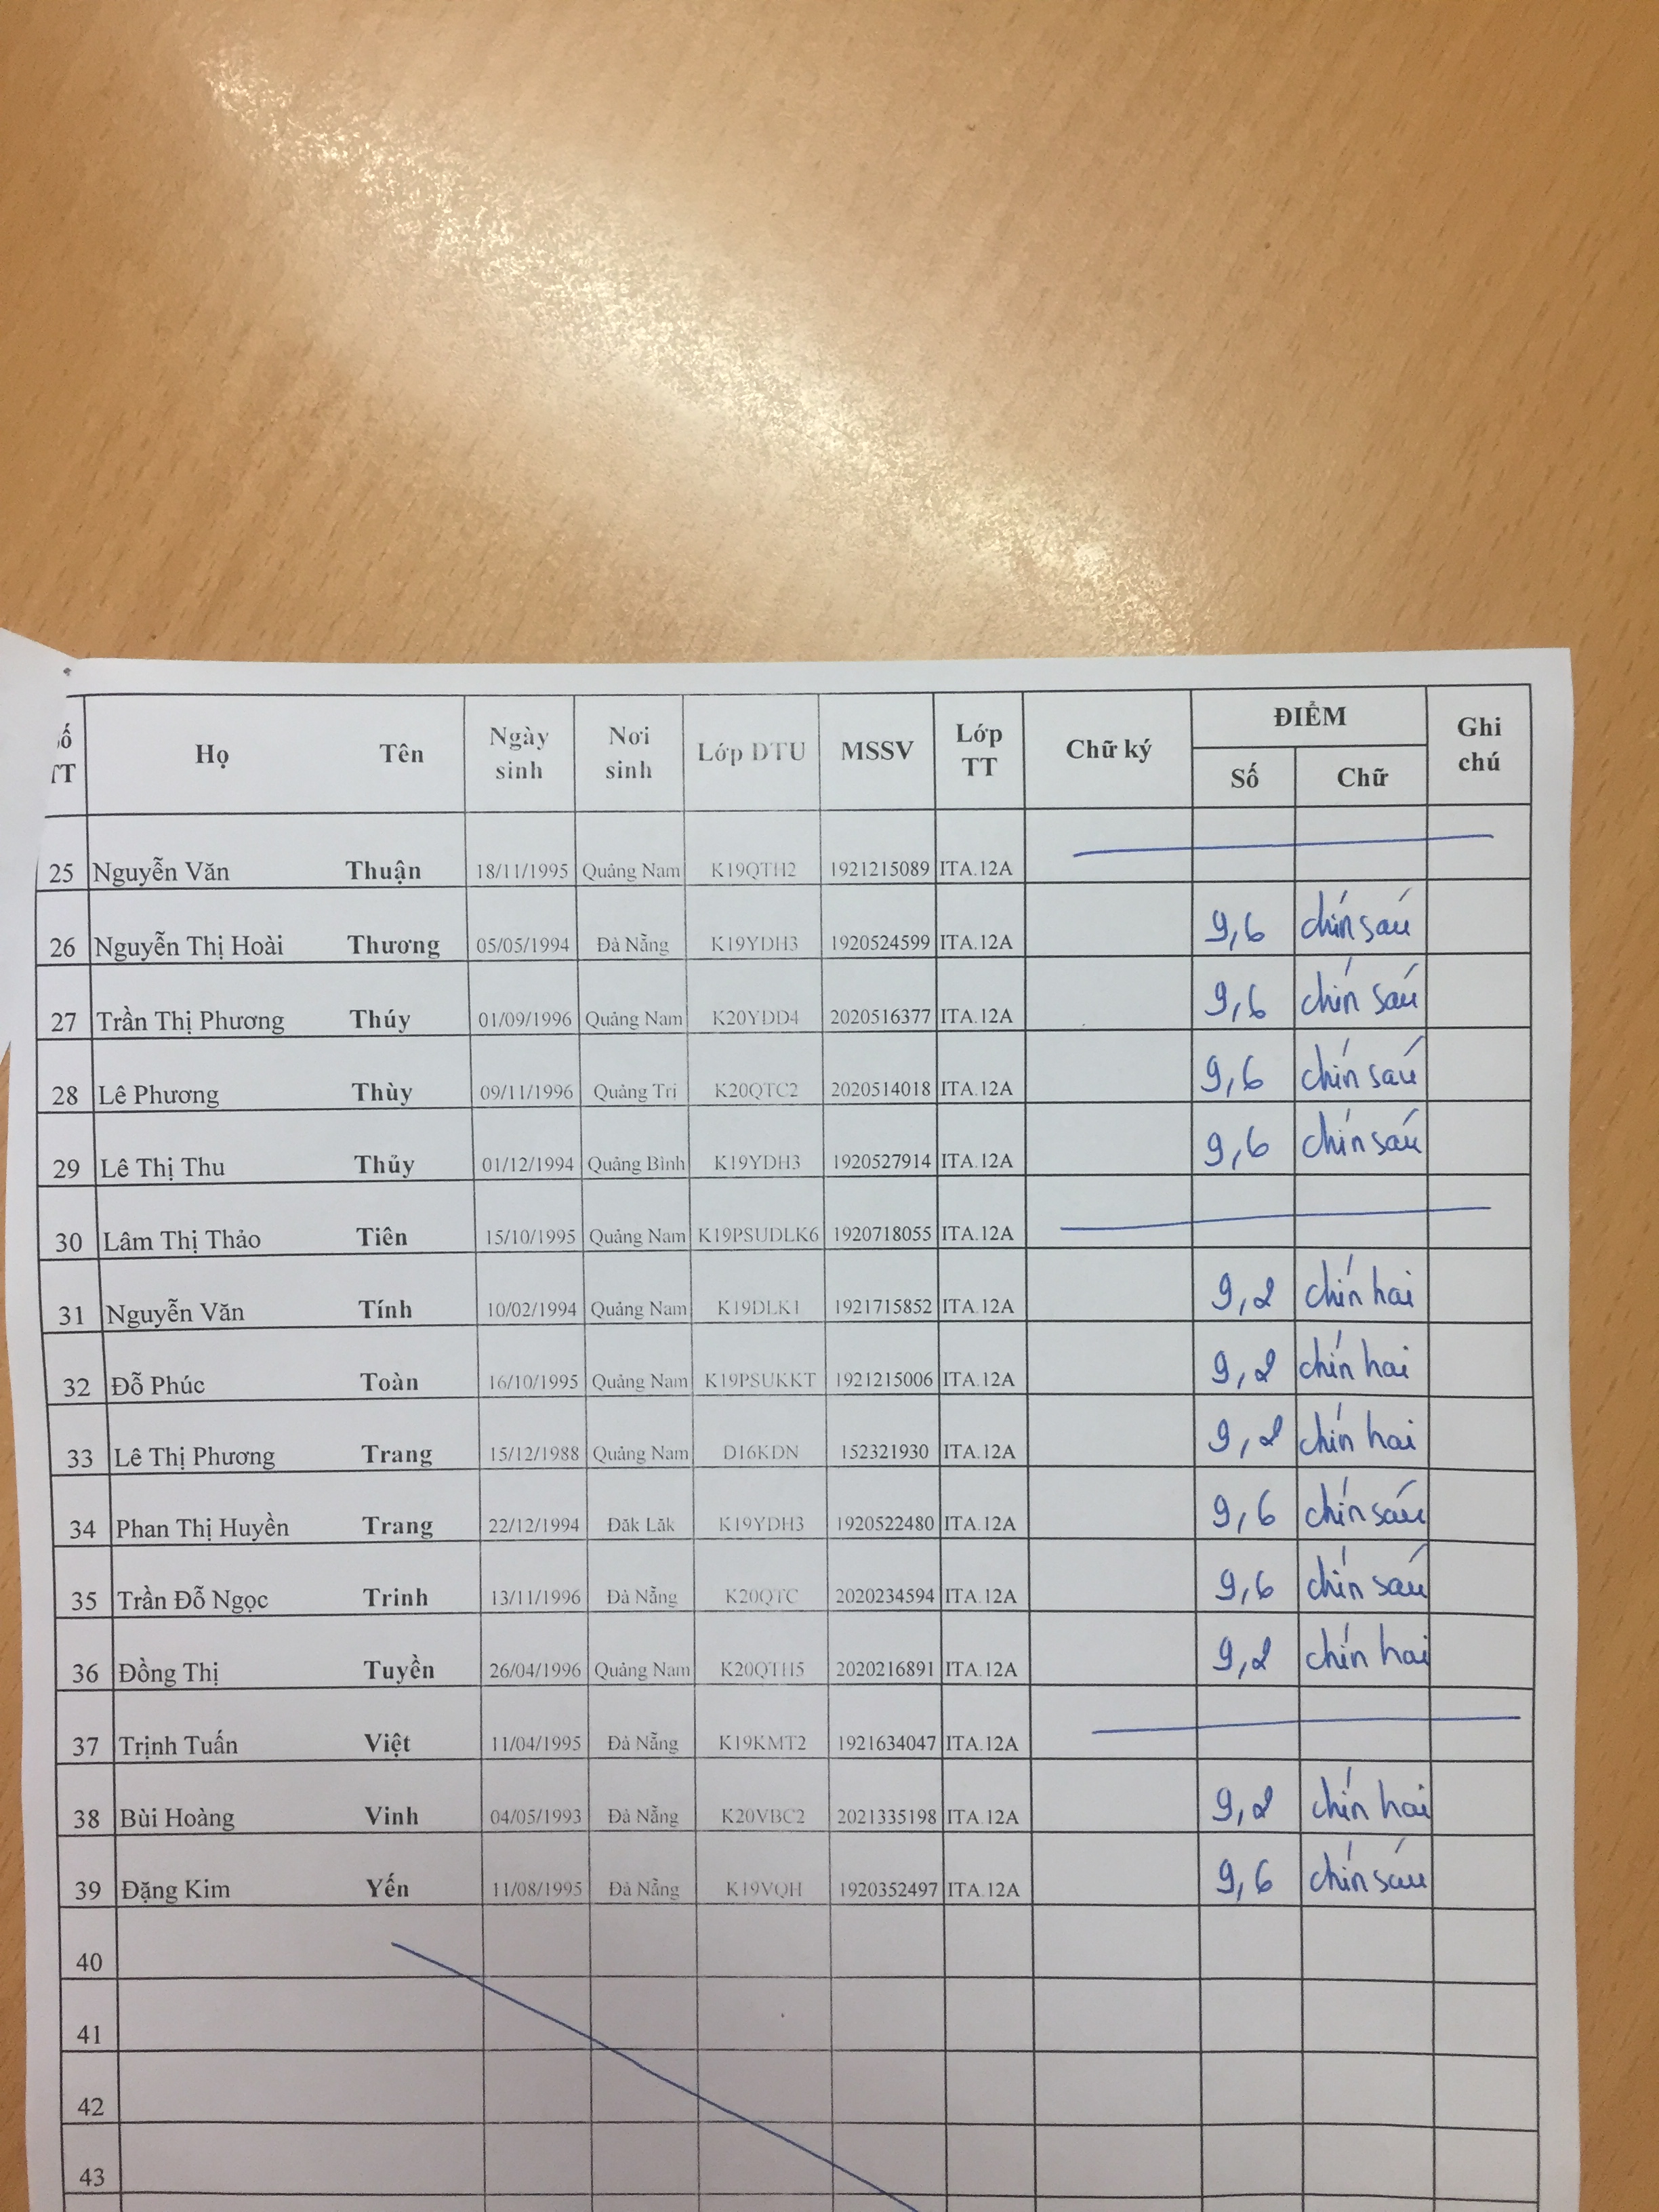 Số TT Họ Tên Ngày sinh Nơi sinh Lớp DTU MSSV Lớp TT Chữ ký ĐIỂM Ghi chú
Số Chữ
25 Nguyễn Văn Thuận 18/11/1995 Quảng Nam K19QTH2 1921215089 ITA.12A
26 Nguyễn Thị Hoài Thương 05/05/1994 Đà Nẵng K19YDH3 1920524599 ITA.12A 9,6 chín sáu
27 Trần Thị Phương Thúy 01/09/1996 Quảng Nam K20YDD4 2020516377 ITA.12A 9,6 chín sáu
28 Lê Phương Thùy 09/11/1996 Quảng Trị K20QTC2 2020514018 ITA.12A 9,6 chín sáu
29 Lê Thị Thu Thủy 01/12/1994 Quảng Bình K19YDH3 1920527914 ITA.12A 9,6 chín sáu
30 Lâm Thị Thảo Tiên 15/10/1995 Quảng Nam K19PSUDLK6 1920718055 ITA.12A
31 Nguyễn Văn Tính 10/02/1994 Quảng Nam K19DLK1 1921715852 ITA.12A 9,2 chín hai
32 Đỗ Phúc Toàn 16/10/1995 Quảng Nam K19PSUKKT 1921215006 ITA.12A 9,2 chín hai
33 Lê Thị Phương Trang 15/12/1988 Quảng Nam D16KDN 152321930 ITA.12A 9,2 chín hai
34 Phan Thị Huyền Trang 22/12/1994 Đăk Lăk K19YDH3 1920522480 ITA.12A 9,6 chín sáu
35 Trần Đỗ Ngọc Trinh 13/11/1996 Đà Nẵng K20QTC 2020234594 ITA.12A 9,6 chín sáu
36 Đồng Thị Tuyền 26/04/1996 Quảng Nam K20QTH5 2020216891 ITA.12A 9,2 chín hai
37 Trịnh Tuấn Việt 11/04/1995 Đà Nẵng K19KMT2 1921634047 ITA.12A
38 Bùi Hoàng Vinh 04/05/1993 Đà Nẵng K20VBC2 2021335198 ITA.12A 9,2 chín hai
39 Đặng Kim Yến 11/08/1995 Đà Nẵng K19VQH 1920352497 ITA.12A 9,6 chín sáu
40
41
42
43